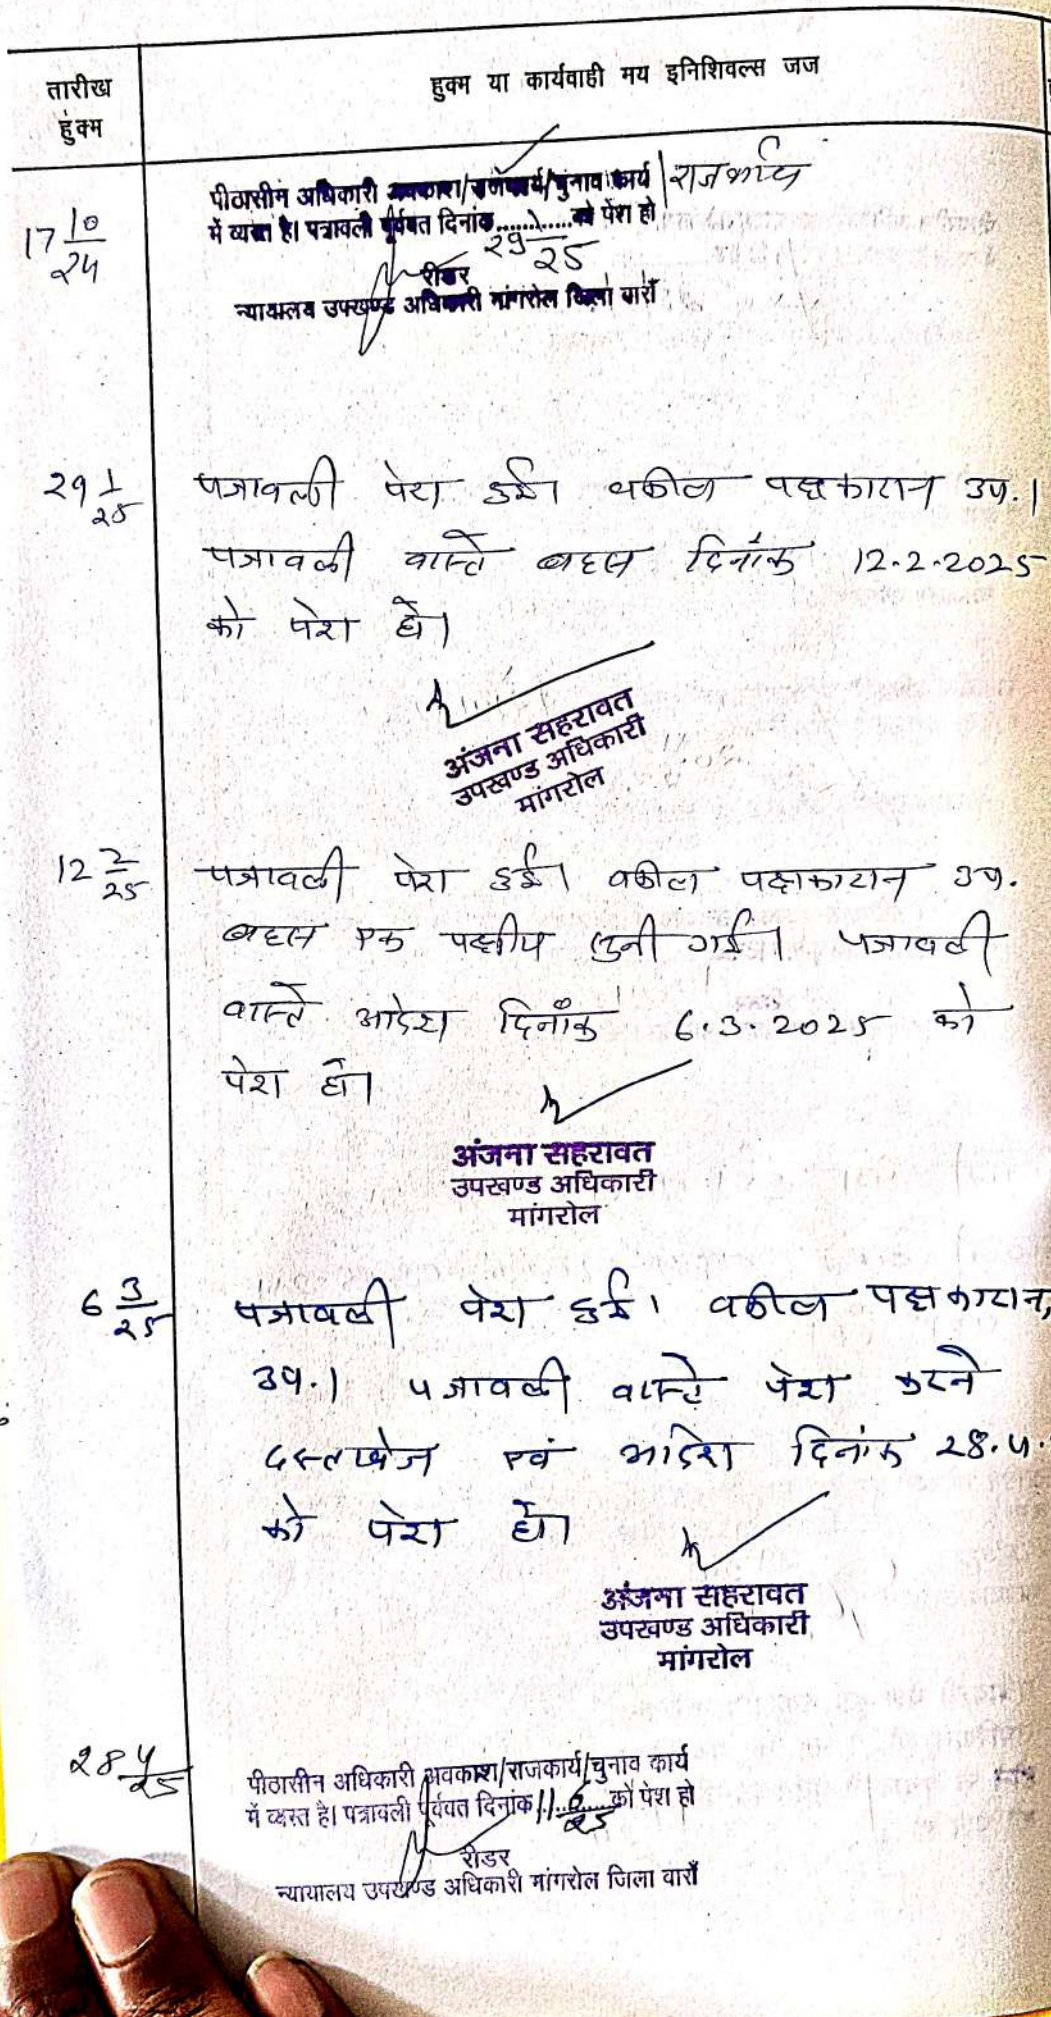 तारीख
हुंक्म
हुक्म या कार्यवाही मय इनिशिवल्स जज
17 10/24
पीठासीन अधिकारी अवकाश/राजकार्य/चुनाव कार्य / राजकार्य
में व्यस्त है। पत्रावली पूर्ववत दिनांक 29/1/25 को पेश हो
रीडर
न्यायालय उपखण्ड अधिकारी मांगरोल जिला बारॉं
29 1/25
पत्रावली पेश हुई। वकील पक्षकारान उप.।
पत्रावली वास्ते बहस दिनांक 12.2.2025
को पेश हो।
अंजना सहरावत
उपखण्ड अधिकारी
मांगरोल
12 2/25
पत्रावली पेश हुई। वकील पक्षकारान उप.
बहस एक पक्षीय सुनी गई। पत्रावली
वास्ते आदेश दिनाँक 6.3.2025 को
पेश हो।
अंजना सहरावत
उपखण्ड अधिकारी
मांगरोल
6 3/25
पत्रावली पेश हुई। वकील पक्षकारान
उप.। पत्रावली वास्ते पेश करने
दस्तावेज एवं आदेश दिनांक 28.4.
को पेश हो।
अंजना सहरावत
उपखण्ड अधिकारी
मांगरोल
28 4/25
पीठासीन अधिकारी अवकाश/राजकार्य/चुनाव कार्य
में व्यस्त है। पत्रावली पूर्ववत दिनांक 11.6/25 को पेश हो
रीडर
न्यायालय उपखण्ड अधिकारी मांगरोल जिला वारॉं